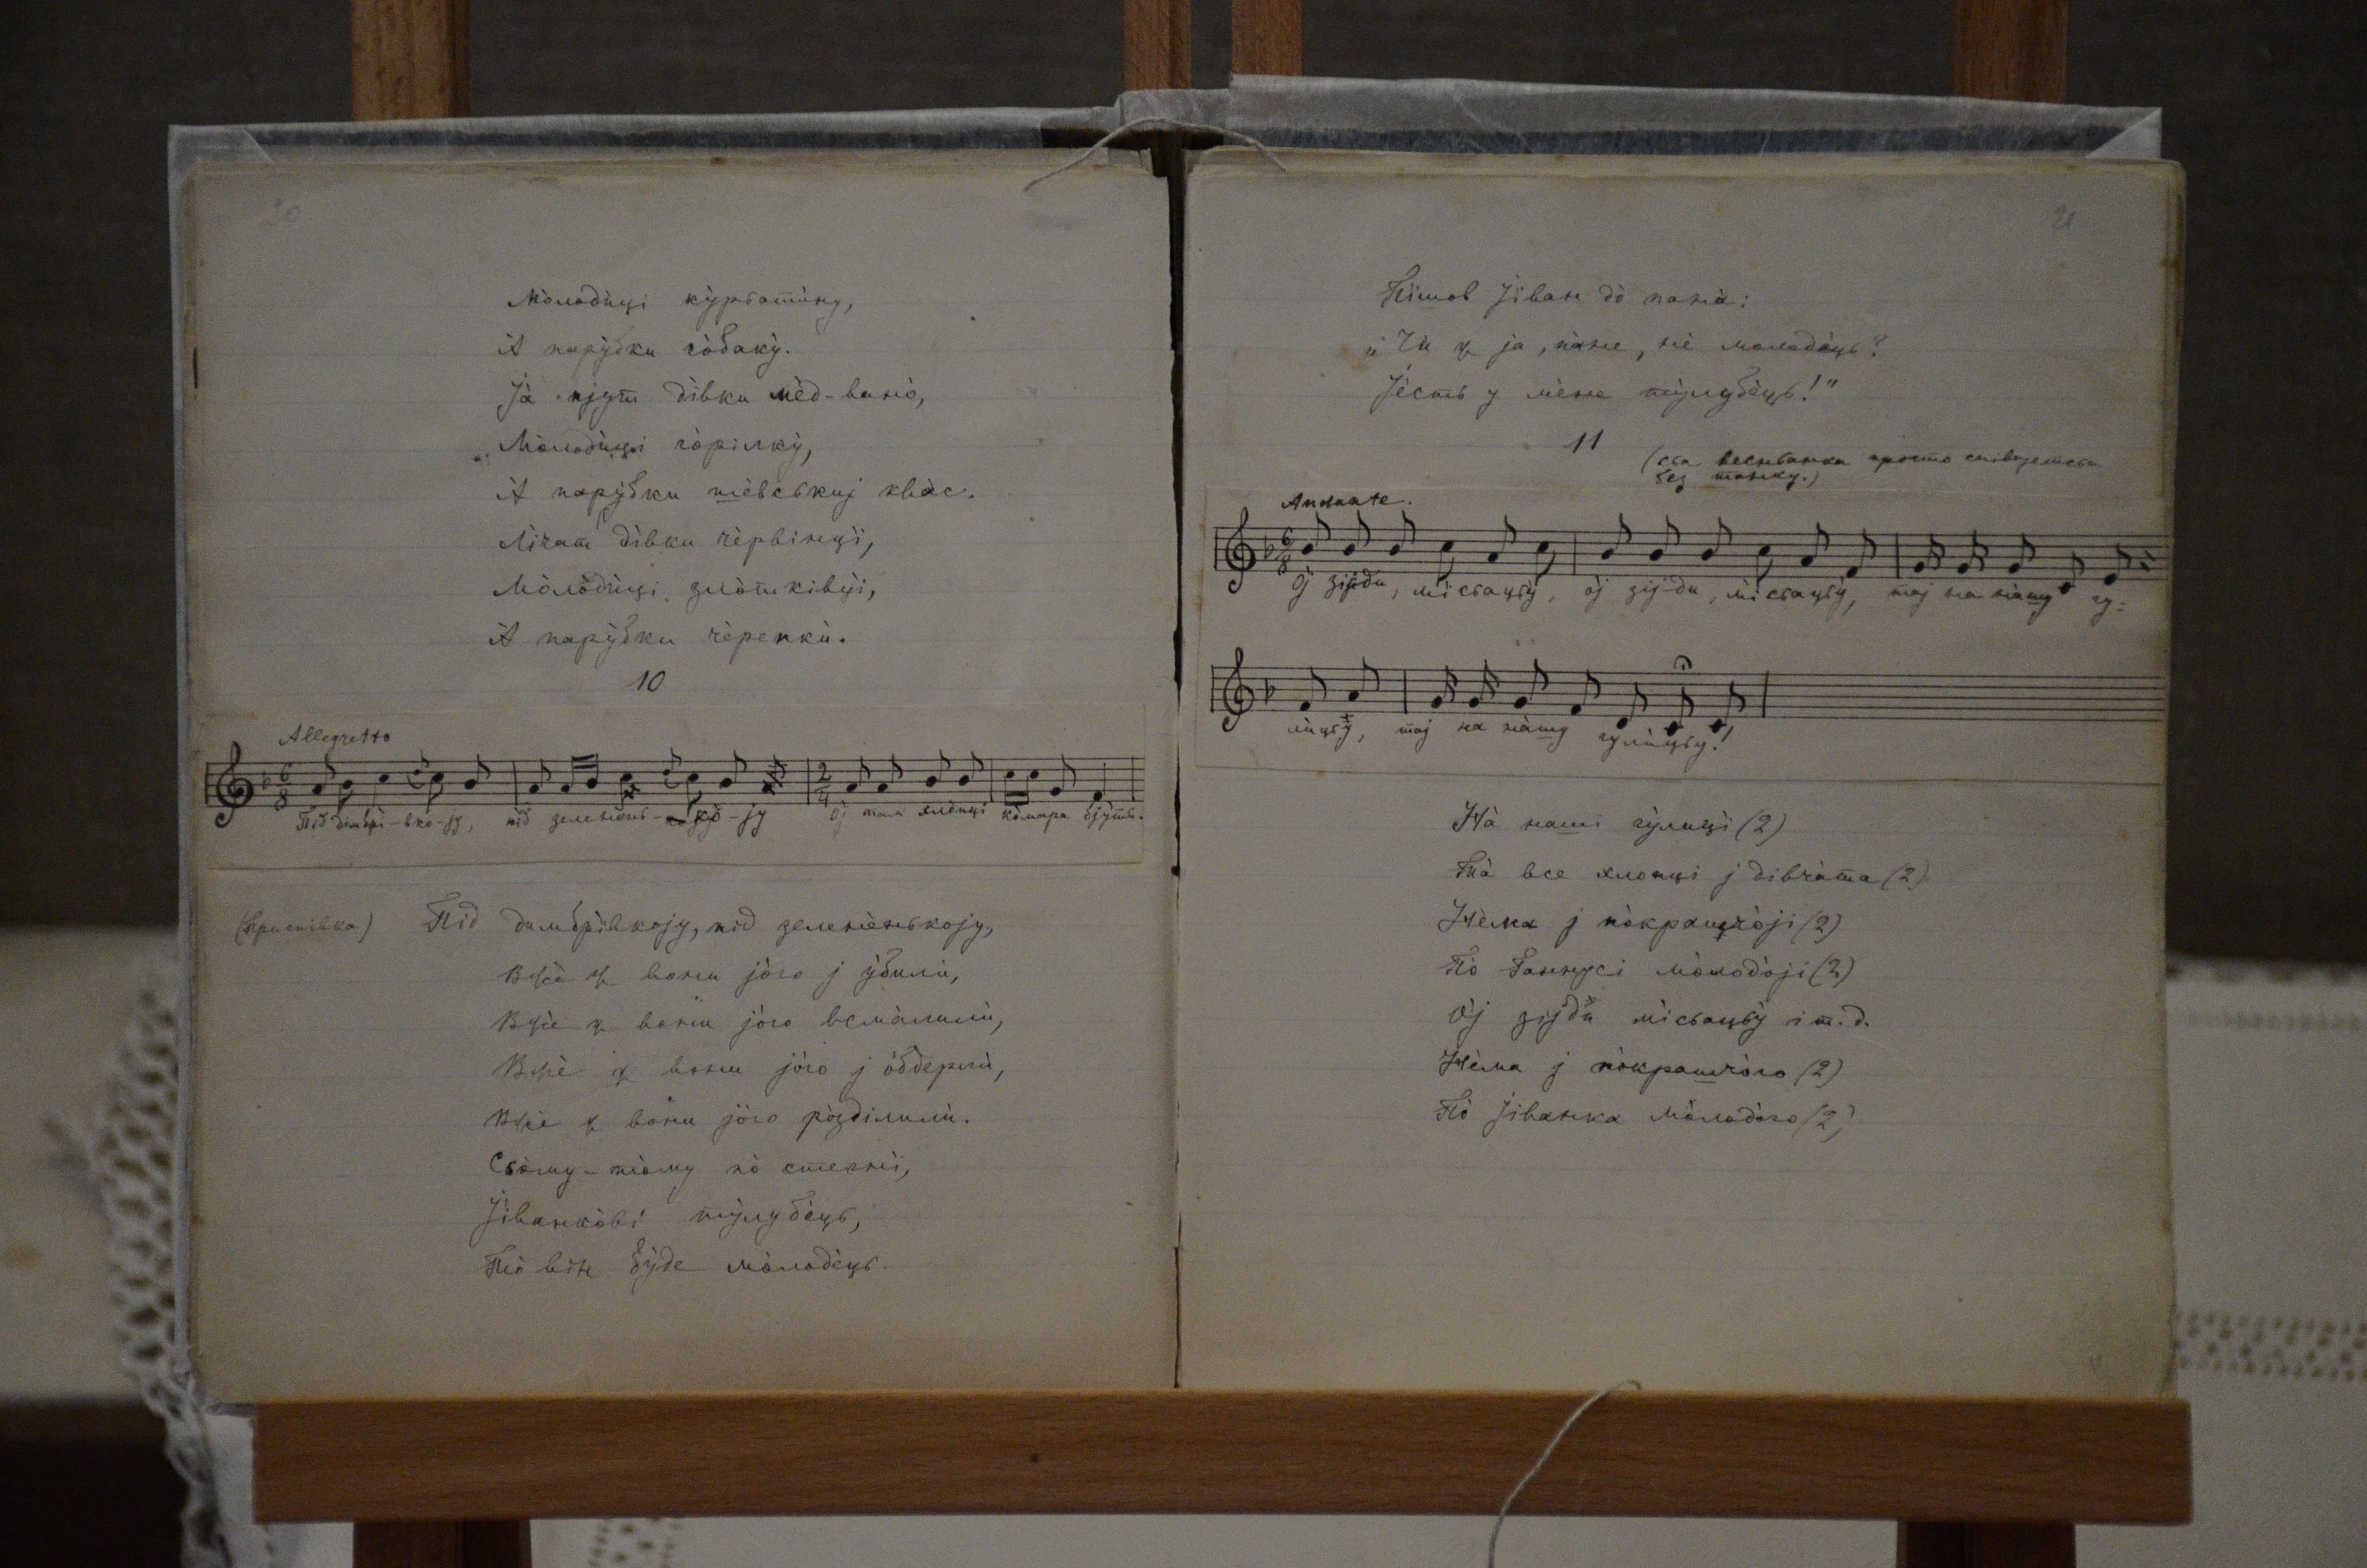 20
Мо̀лоди̇̀ці ку̀рьати̇̀ну,
А̀ пару̀бки со̀баку̀.
Jа̀ пjут ді̀вки мѐд-вино̀,
Мо̀лоди̇̀ці го̀рілку̀,
А̀ пару̀бки шѐвськиj ква̀с.
Лі̀чат ді̀вки чѐрвінці̀,
Мо̀лоди̇̀ці зло̀тківці̀,
А̀ пару̀бки чѐрепки̇̀.
10
Allegretto
6/8 2/4
Під дімбрі-вко-jу, під зеленѐнь-ко-jу Оj там хло̀пці ко̀мара бjу̀ть.
(Приспівка) Під димбрі̀вкоjу, під зеленѐнькоjу,
Вжѐ ж вони jо̀го j у̀били̇̀,
Вжѐ ж вони jо̀го всма̀лили̇̀,
Вжѐ ж вони jо̀го j о̀бдерли̇̀,
Вжѐ ж во̀ни jо̀го ро̀зділили̇̀.
Сьо̀му-то̀му по̀ стегні̀,
Jі̀ванко̀ві ту̀лубѐць,
То̀ ві̀н бу̀де мо̀лодѐць.
21
Пі̀шов Jі̀ван до̀ пана̀:
„Чи̇̀ ж jа, па̀не, нѐ молодѐць?
Jѐсть у мѐне ту̀лубѐць!"
11
(сьа веснванка просто співаjетсьа
без танку.)
Andante.
6/8
О̀j зіjди, мі̀сьацьу̀, о̀j зіj-ди, мі̀сьацьу̀, таj на на̀шу гу-
ли̇̀цьу, таj на на̀шу гули̇̀цьу!
На̀ наші гу̀лиці̀ (2)
Та̀ все хлопці j дівча̀та (2)
Нѐма j по̀кращо̀jі (2)
По̀ Ганнусі мо̀лодо̀jі (2)
О̀j зіjди̇̀ місьацьу̀ і т. д.
Нѐма j по̀кращо̀го (2)
По̀ Jі̀ванка мо̀лодо̀го (2)